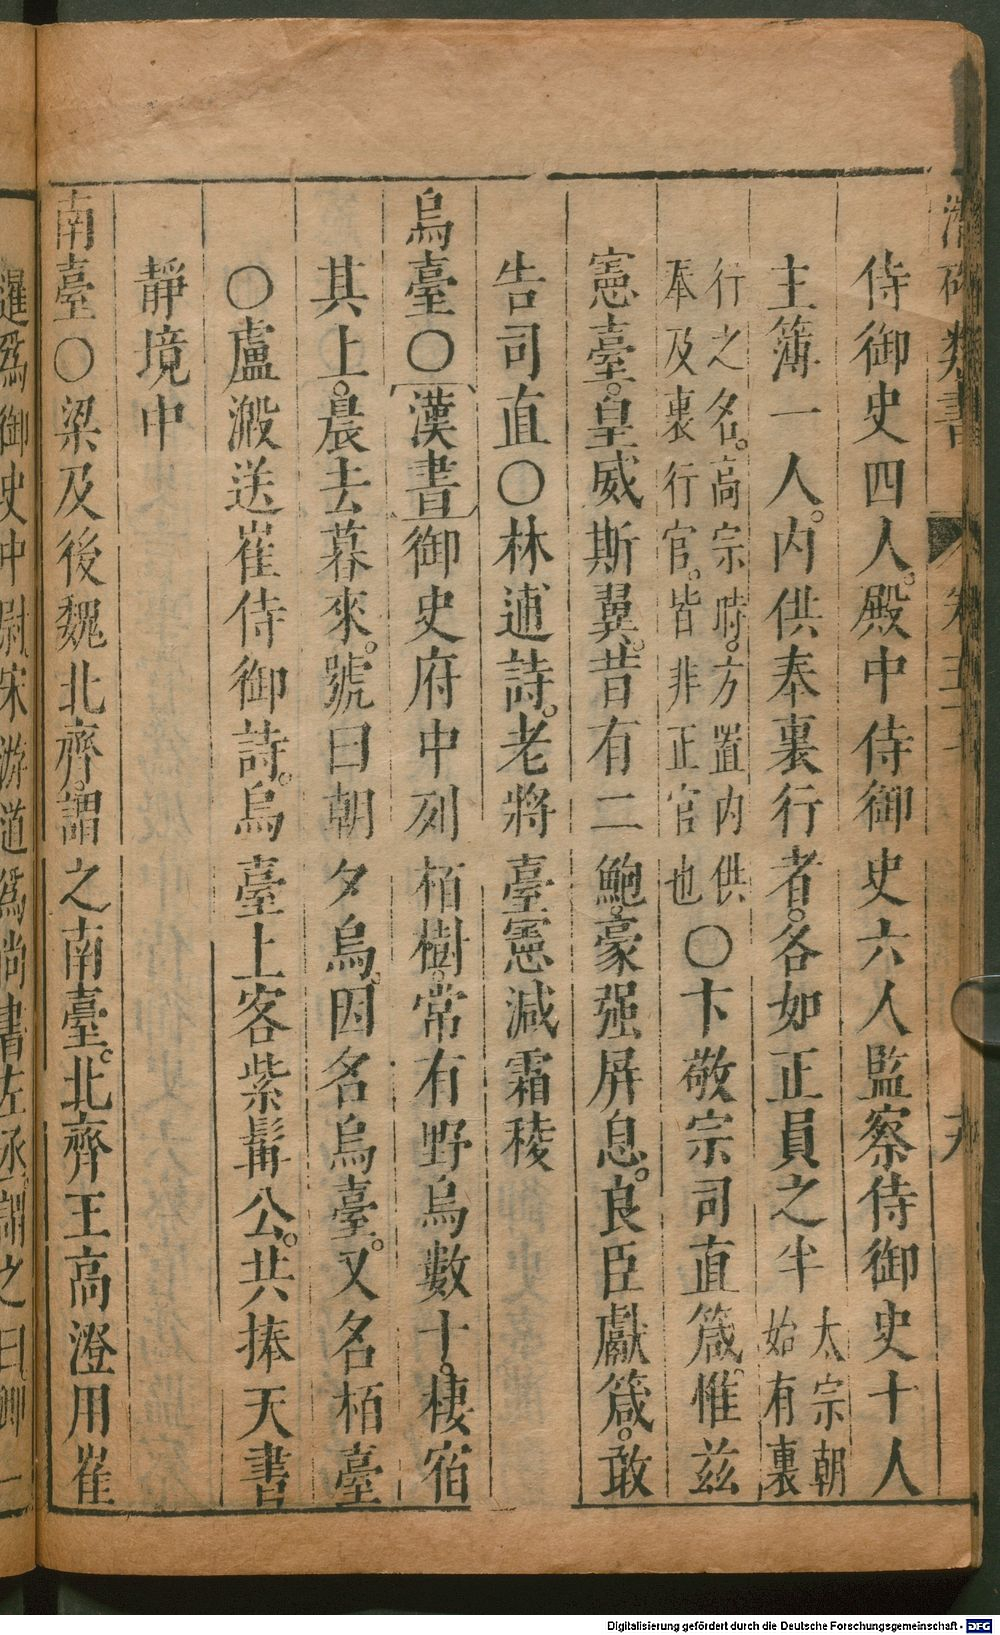 類書
侍御史四人。殿中侍御史六人監察侍御史十人
主簿一人。內供奉裏行者。各如正員之半太宗朝始有裏
行之名。高宗時。方置內供奉及裏行官。皆非正官也〇卞敬宗司直箴。惟茲
憲臺。皇威斯翼。昔有二鮑。豪强屏息。良臣獻箴。敢
告司直〇林逋詩。老將臺憲減霜稜
烏臺〇漢書御史府中列栢樹。常有野烏數十。棲宿
其上。晨去暮來。號曰朝夕烏。因名烏臺。又名栢臺
〇盧澱送崔侍御詩。烏臺上客紫髯公。共捧天書
靜境中
南臺〇梁及後魏北齊。謂之南臺。北齊王高澄用崔
暹爲御史中尉宋游道爲尚書左丞。謂之曰。卿一
Digitalisierung gefördert durch die Deutsche Forschungsgemeinschaft - DFG